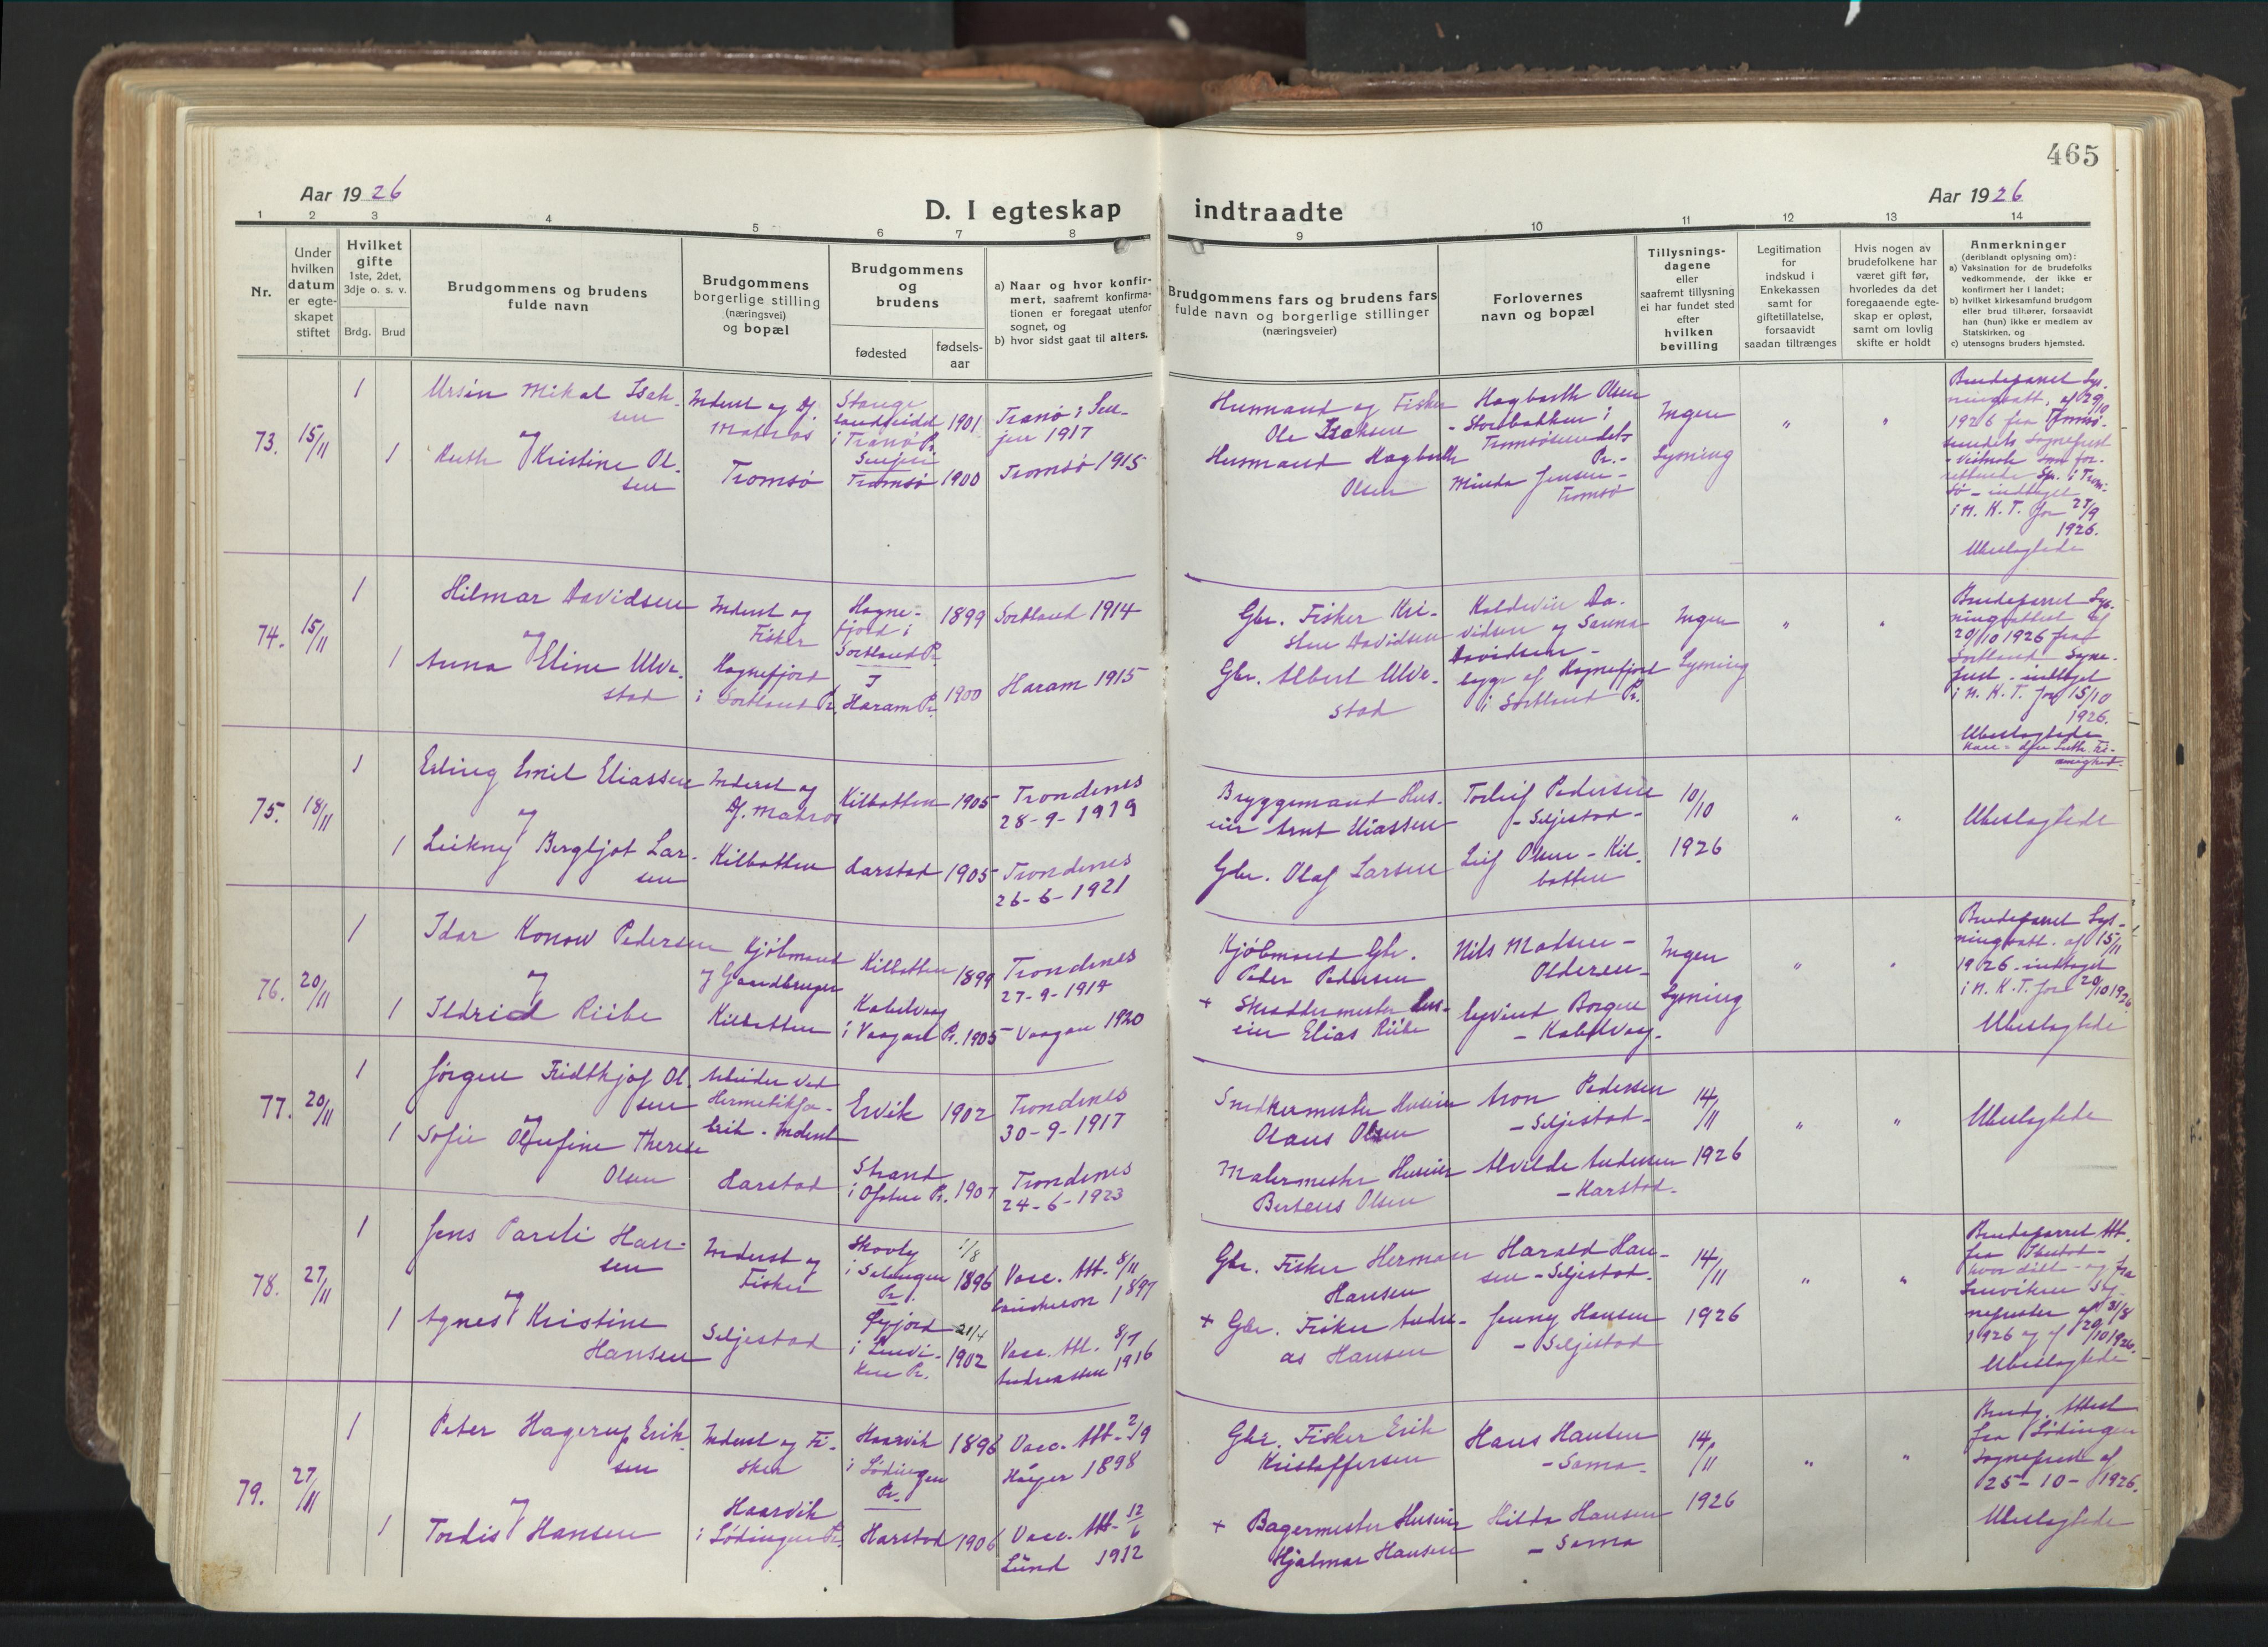 465
Aar 1926
Aar 1926
D. I egteskap indtraadte
1 2 3 4 5 6 7 8 9 10 11 12 13 14
Nr.
Under
hvilken
datum
er egte-
skapet
stiftet
Hvilket
gifte
1ste, 2det,
3dje o. s. v.
Brdg. Brud
Brudgommens og brudens
fulde navn
Brudgommens
borgerlige stilling
(næringsvei)
og bopæl
Brudgommens
og
brudens
fødested
fødsels-
aar
a) Naar og hvor konfir-
mert, saafremt konfirma-
tionen er foregaat utenfor
sognet, og
b) hvor sidst gaat til alters.
Brudgommens fars og brudens fars
fulde navn og borgerlige stillinger
(næringsveier)
Forlovernes
navn og bopæl
Tillysnings-
dagene
eller
saafremt tillysning
ei har fundet sted
efter
hvilken
bevilling
Legitimation
for
indskud i
Enkekassen
samt for
giftetillatelse,
forsaavidt
saadan tiltrænges
Hvis nogen av
brudefolkene har
været gift før,
hvorledes da det
foregaaende egte-
skap er opløst,
samt om lovlig
skifte er holdt
Anmerkninger
(deriblandt oplysning om):
a) Vaksination for de brudefolks
vedkommende, der ikke er
konfirmert her i landet;
b) hvilket kirkesamfund brudgom
eller brud tilhører, forsaavidt
han (hun) ikke er medlem av
Statskirken, og
c) utensogns bruders hjemsted.
73.
15/11
1
1
Ursin Mikal Isak-
sen
og
Ruth Kristine Ol-
sen
Inderst og
Matros
Tromsø
Stange
i Tranø Pr.
Senjen
Tromsø
1901
1900
Tranø i Sen-
jen 1917
Tromsø 1915
Husmand og Fisker
Ole Isaksen
Husmand Hagbarth
Olsen
Hagbarth Olsen
- Storbakken i
Tromsøsundets
Pr. -
Minda Jensen -
Tromsø
Ingen
Lysning
"
"
Brudeparret Lys-
ningsatt. af 29/10
1926 fra Tromsø-
sundets Sogneprest
i N. K. T. for 27/9
1926.
Ubeslægtede
74.
15/11
1
1
Hilmar Davidsen
og
Anna Eline Ulve-
stad
Inderst og
Fisker
Hognefjord
i Sortland Pr.
Hogne-
fjord i
Sortland Pr.
I
Haram Pr.
1899
1900
Sortland 1914
Haram 1915
Gbr. Fisker Kri-
sten Davidsen
Gbr. Albert Ulve-
stad
Kaldevin Da-
vidsen og Sanna
Davidsen -
begge af Hognefjord
i Sortland Pr.
Ingen
Lysning
"
"
Brudeparret Lys-
ningsattest af
20/10 1926 fra
Sortland Sogne-
prest - indtaget
i N. K. T. for 15/10
1926.
Ubeslægtede
75.
18/11
1
1
Erling Emil Eliassen
og
Leikny Bergljot Lar-
sen
Inderst og
Matros
Kilbotten
Kilbotten
Harstad
1905
1905
Trondenes
28-9-1919
Trondenes
26-6-1921
Bryggemand Hus-
eier Arnt Eliassen
Gbr. Olaf Larsen
Torleif Pedersen
- Seljestad -
Leif Olsen - Kil-
botten
10/10
1926
"
"
Ubeslægtede
76.
20/11
1
1
Idar Konow Pedersen
og
Ildrid Riibe
Kjøbmand
og Gaardbruger
Kilbotten
Kilbotten
Kabelvaag
i Vaagan Pr.
1899
1905
Trondenes
27-9-1914
Vaagan 1920
Kjøbmand Gbr.
Peder Pedersen
+ Skræddermester Hus-
eier Elias Riibe
Nils Madsen -
Olderen -
Eyvind Borgen
- Kabelvaag -
Ingen
Lysning
"
"
Brudeparret Lys-
ningsatt. af 15/11
1926 - indtaget
i N. K. T. for 20/10 1926
Ubeslægtede
77.
20/11
1
1
Jørgen Fridthjof Ol-
sen
og
Sofie Olufine Therese
Olsen
Arbeider ved
Hermetikfa-
brik - Inderst
Harstad
Ervik
Strand
i Ofoten Pr.
1902
1907
Trondenes
30-9-1917
Trondenes
24-6-1923
Snedkermester Huseier
Olaus Olsen
Malermester Huseier
Berteus Olsen
Aron Pedersen
- Seljestad -
Alvilde Andersen
- Harstad -
14/11
1926
"
"
Ubeslægtede
78.
27/11
1
1
Jens Pareli Han-
sen
og
Agnes Kristine
Hansen
Inderst og
Fisker
Seljestad
Skovly
i Salangen
Pr.
Gjfjord
i Lenvi-
ken Pr.
1/8
1896
21/4
1902
Vacc. Att. 8/11
1897
Vacc. Att. 8/7
Andreassen 1916
Gbr. Fisker Herman
Hansen
+ Gbr. Fisker Andre-
as Hansen
Harald Han-
sen - Seljestad.
Jenny Hansen
- Seljestad
14/11
1926
"
"
Brudeparret Att.
fra Ibestad -
og fra
Lenviken Sog-
neprester af 31/8
1926 og af 20/10 1926.
Ubeslægtede
79.
27/11
1
1
Peter Hagerup Erik-
sen
og
Tordis Hansen
Inderst og Fi-
sker
Haarvik
i Lødingen Pr.
Haarvik
i Lødingen
Pr.
Harstad
1896
1906
Vacc. Att. 2/9
Høyer 1898
Vacc. Att. 12/6
Lund 1912
Gbr. Fisker Erik
Kristoffersen
+ Bagermester Huseier
Hjalmar Hansen
Hans Hansen
- Sama -
Hilda Hansen
- Sama
14/11
1926
"
"
Brudg. Attest
fra Lødingen
Sogneprest af
25-10-1926.
Ubeslægtede